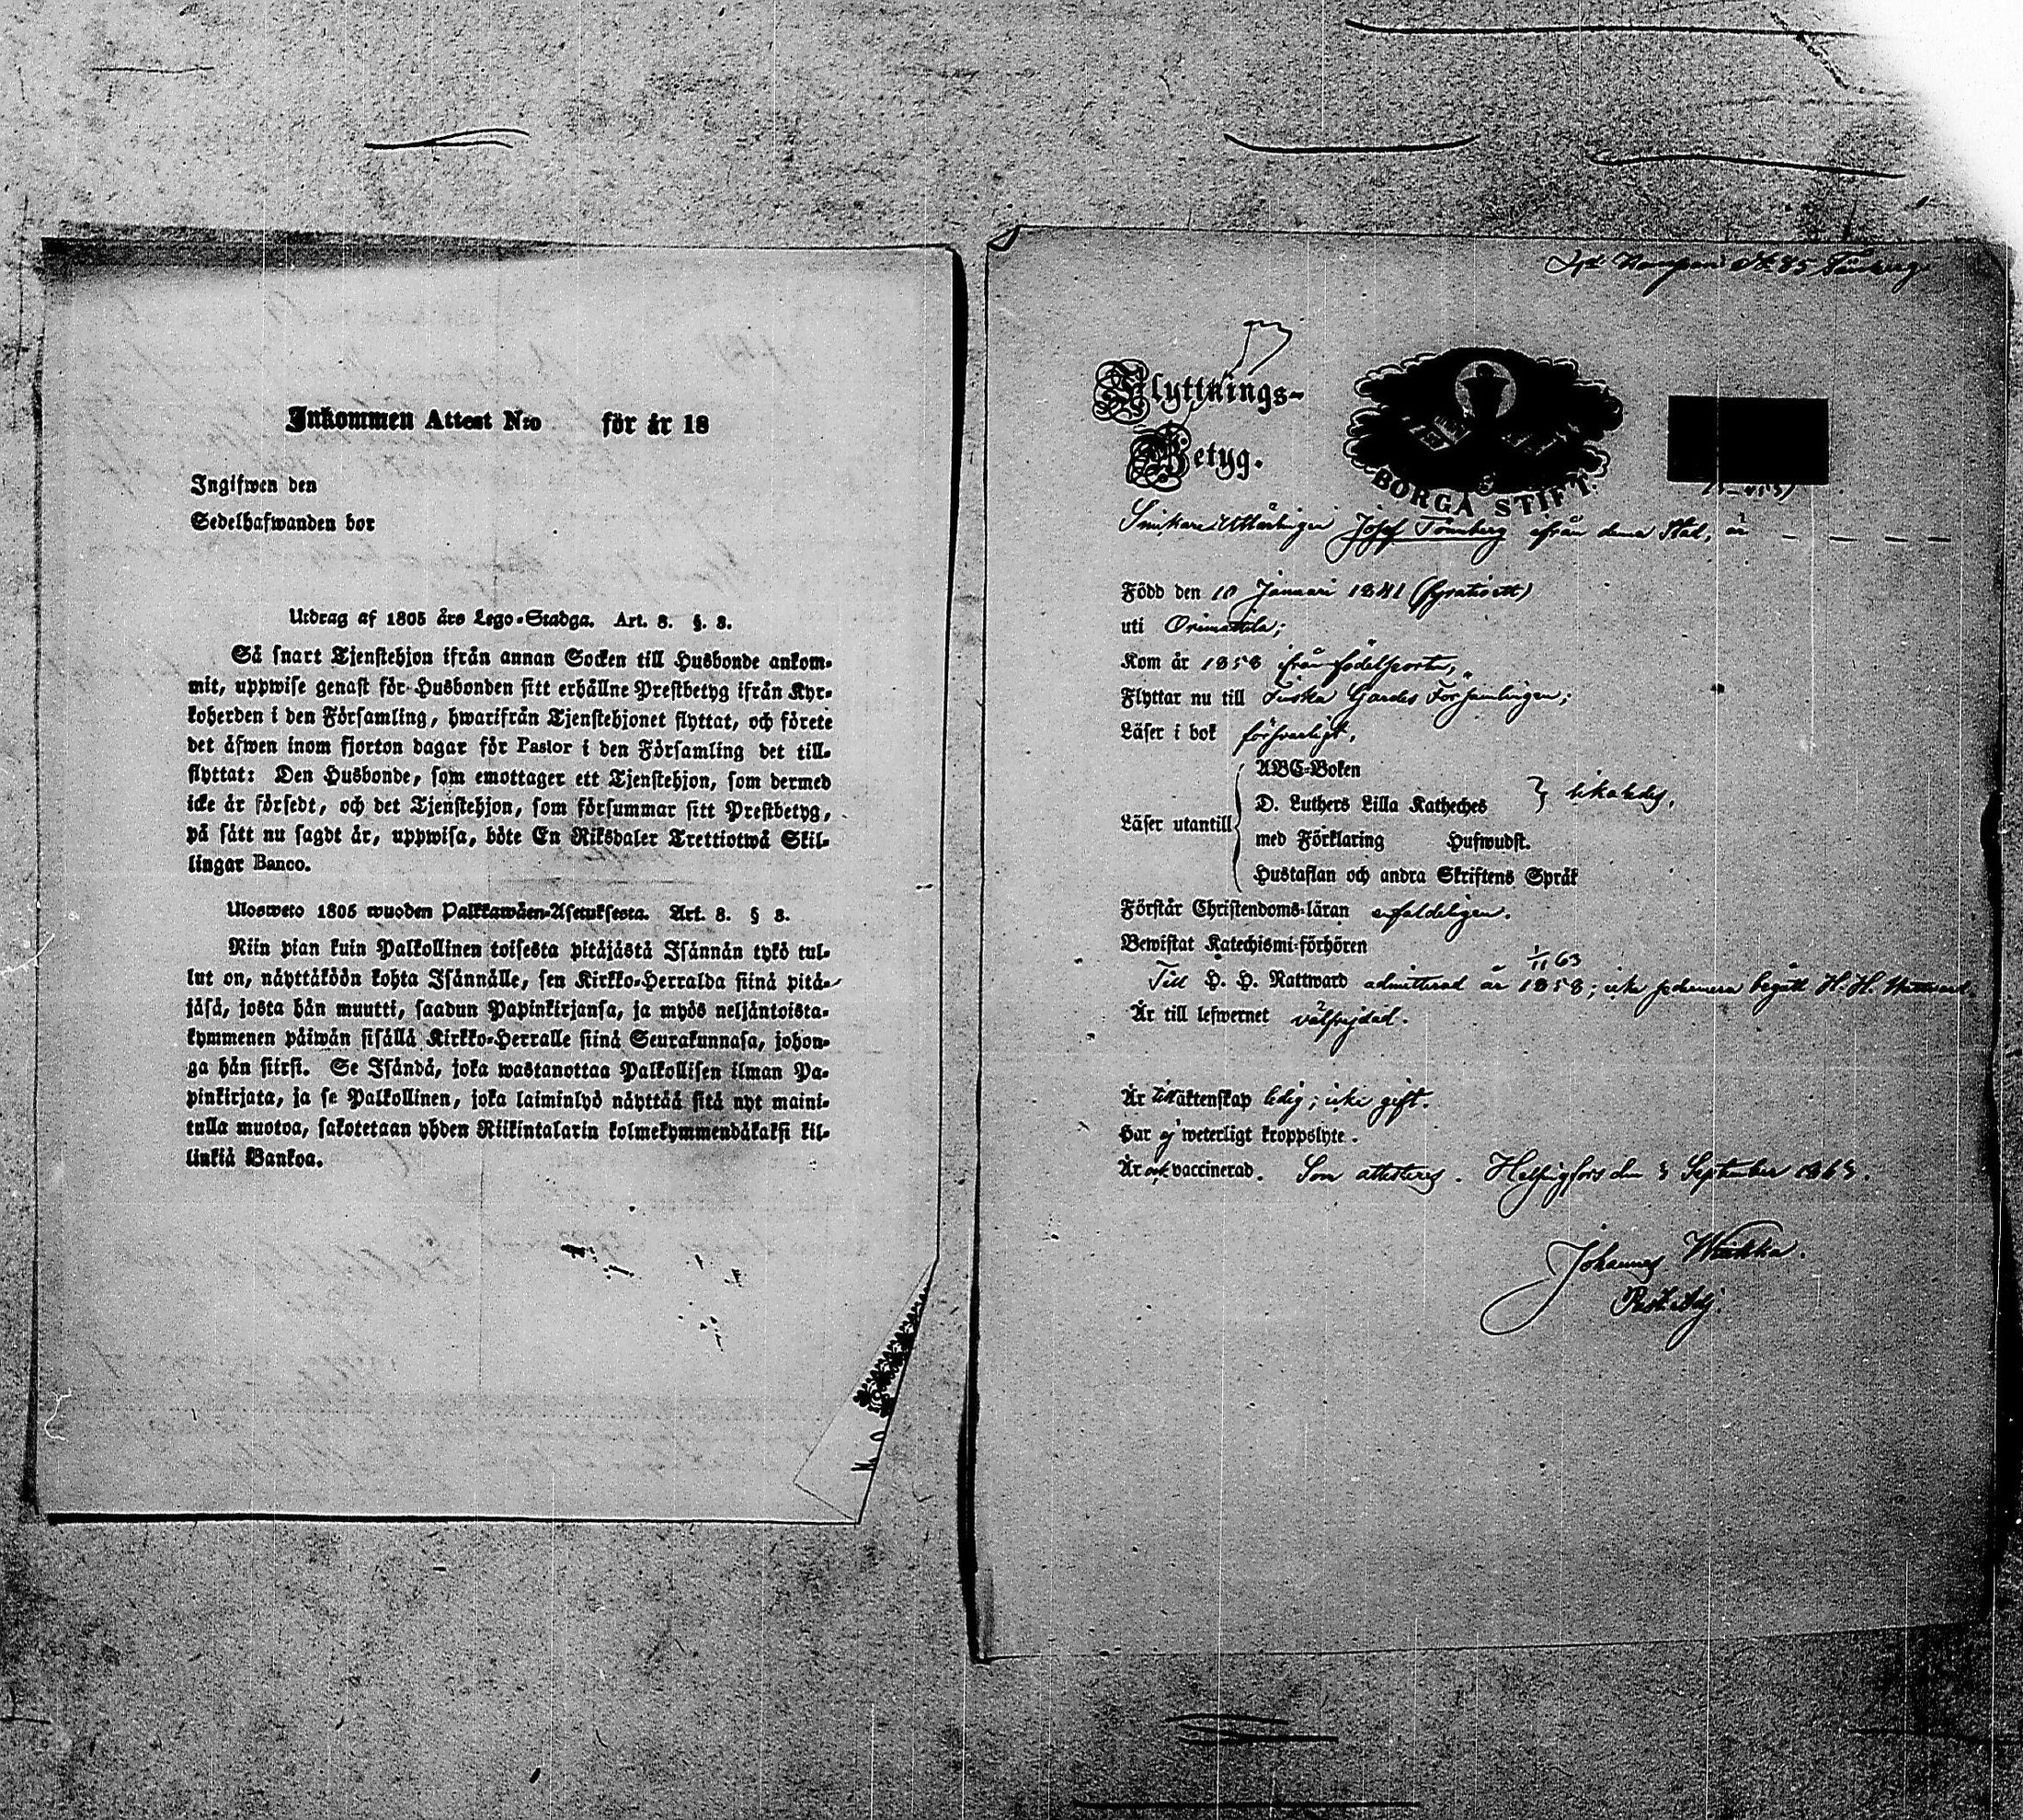 Inkommen Attest N:o för år 18
Ingifwen den
Sedelhafwanden bor
Utdrag af 1805 års Lego-Stadga. Art. 8. §. 8.
Så snart Tjenstehjon ifrån annan Socken till Husbonde ankom-
mit, uppwise genast för Husbonden sitt erhållne Prestbetyg ifrån Kyr-
koherden i den Församling, hwarifrån Tjenstehjonet flyttat, och förete
det äfwen inom fjorton dagar för Pastor i den Församling det till-
flyttat: Den Husbonde, som emottager ett Tjenstehjon, som dermed
icke är försedt, och det Tjenstehjon, som försummar sitt Prestbetyg,
på sätt nu sagdt är, uppwisa, böte En Riksdaler Trettiotwå Skil-
lingar Banco.
Ulosweto 1805 wuoden Palkkawäen-Asetuksesta. Art. 8. § 8.
Niin pian kuin Palkollinen toisesta pitäjästä Isännän tykö tul-
lut on, näyttäköön kohta Isännälle, sen Kirkko-Herralda siinä pitä-
jäsä, josta hän muutti, saadun Papinkirjansa, ja myös neljäntoista-
kymmenen päiwän sisällä Kirkko-Herralle siinä Seurakunnasa, johon-
ga hän siirsi. Se Isändä, joka wastanottaa Palkollisen ilman Pa-
pinkirjata, ja se Palkollinen, joka laiminlyö näyttää sitä nyt maini-
tulla muotoa, sakotetaan yhden Riikintalarin kolmekymmendäkaksi kil-
linkiä Bankoa.
№ 85
Flyttnings-
Betyg.
BORGÅ STIFT.
Josef Törnberg ifrån denna Stad, är
Född den 10 Januari 1841 (fyratioett)
uti Orimattila;
Kom år 1858 ifrån födelseorten,
Flyttar nu till Finska Gardes Församlingen;
Läser i bok försvarligt,
Läser utantill
ABC-Boken
D. Luthers Lilla Katheches } likaledes,
med Förklaring Hufwudst.
Hustaflan och andra Skriftens Språk
Förstår Christendoms-läran enfaldeligen.
Bewistat Katechismi-förhören
Till H. H. Nattward admitterad år 1858; icke sedermera begått H. H. Nattward.
Är till lefwernet välfrejdad.
Är till äktenskap ledig; icke gift.
Har ej weterligt kroppslyte.
Är och vaccinerad. Som attesteras. Helsingfors den 3 September 1863.
Johannes